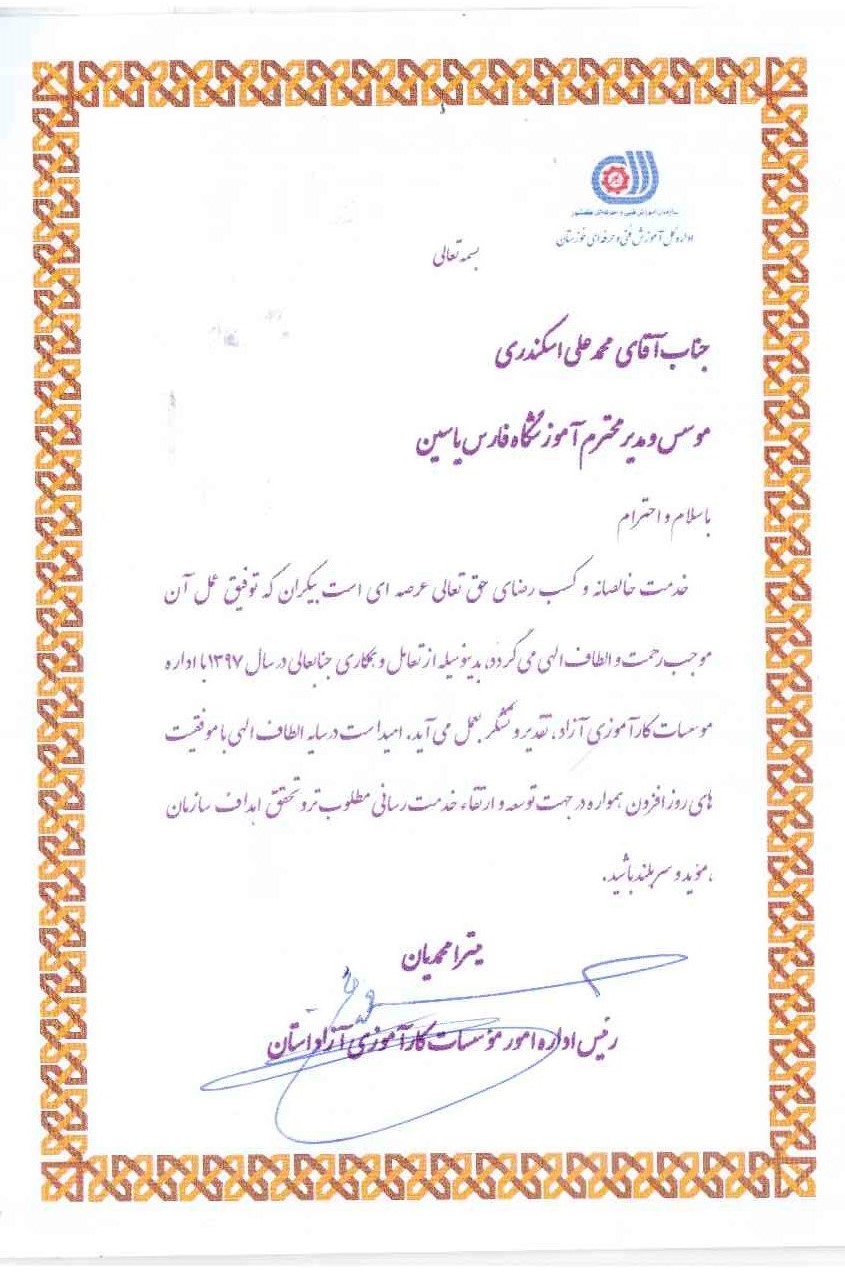 سازمان آموزش فنی و حرفه‌ای کشور
اداره کل آموزش فنی و حرفه ای خوزستان
بسمه تعالی
جناب آقای محمد علی اسکندری
موسس و مدیر محترم آموزشگاه فارس یاسین
با سلام و احترام
خدمت خالصانه و کسب رضای حق تعالی عرصه ای است بیکران که توفیق عمل آن
موجب رحمت و الطاف الهی می گردد، بدینوسیله از تعامل و همکاری جنابعالی در سال ۱۳۹۷ با اداره
موسسات کارآموزی آزاد، تقدیر و تشکر بعمل می آید. امید است در سایه الطاف الهی با موفقیت
های روز افزون همواره در جهت توسعه و ارتقاء خدمت رسانی مطلوب تر و تحقق اهداف سازمان
،مؤید و سربلند باشید.
میترا محمدیان
رئیس اداره امور مؤسسات کارآموزی آزاد استان